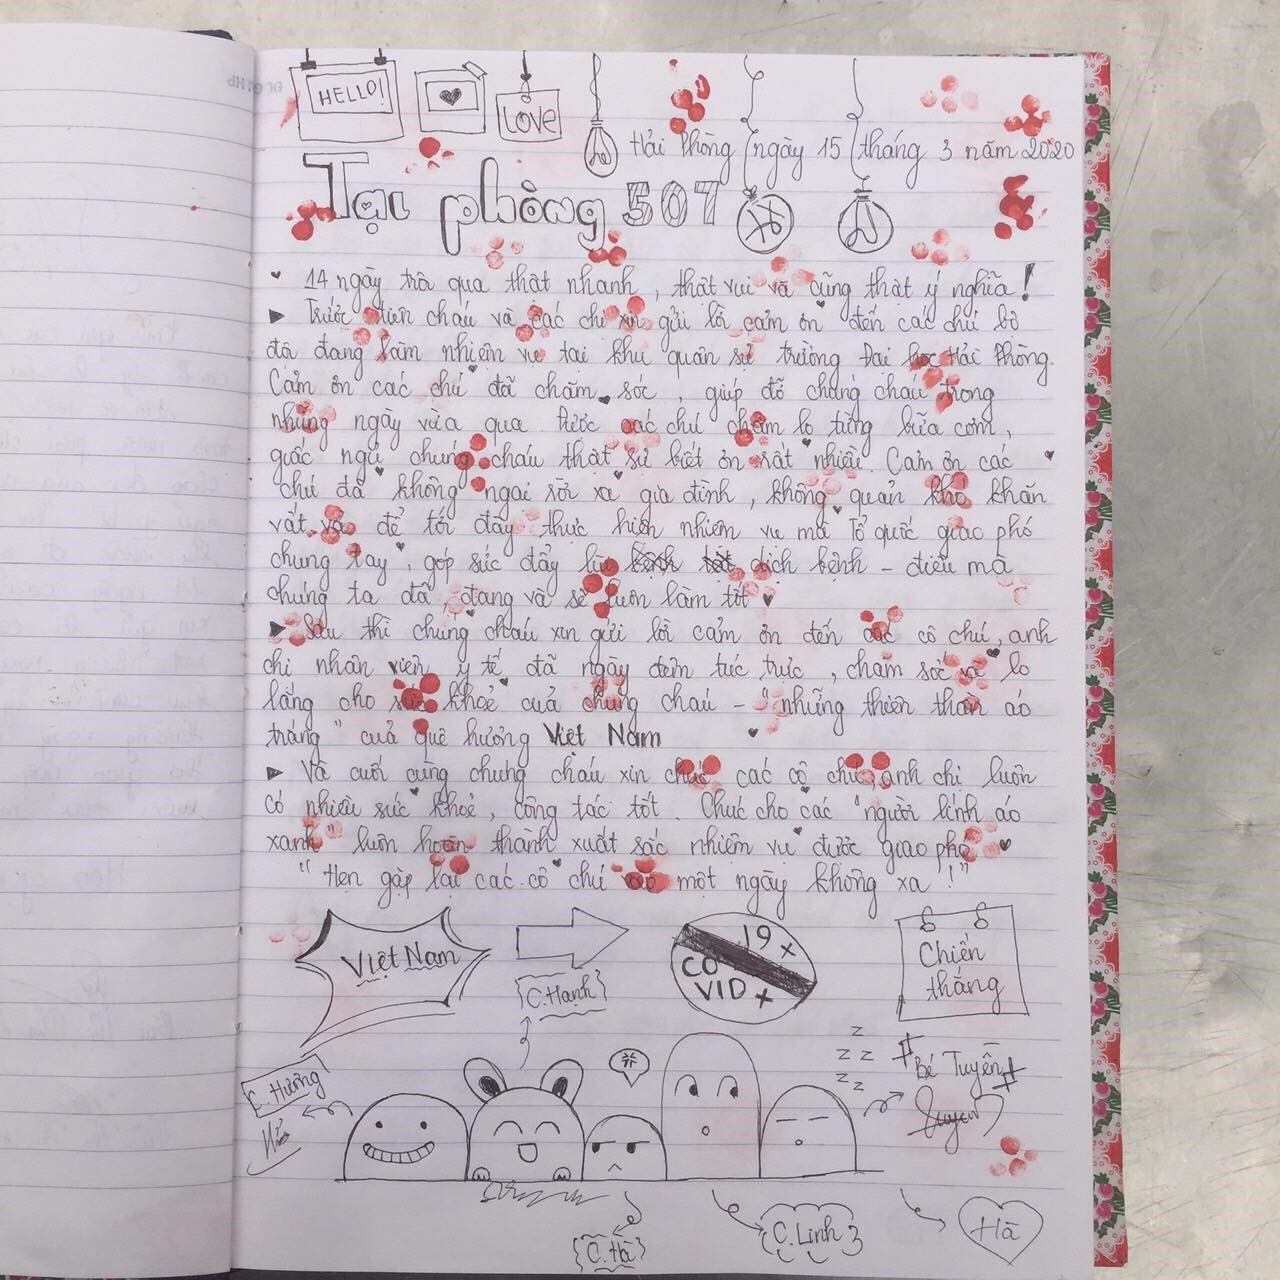 HELLO!
LOVE
Hải Phòng ngày 15 tháng 3 năm 2020
Tại phòng 507
14 ngày trôi qua thật nhanh, thật vui và cũng thật ý nghĩa!
Trước tiên cháu và các chị xin gửi lời cảm ơn đến các chú bộ
đội đang làm nhiệm vụ tại khu quân sự trường Đại học Hải Phòng.
Cảm ơn các chú đã chăm sóc, giúp đỡ chúng cháu trong
những ngày vừa qua. Được các chú chăm lo từng bữa cơm,
giấc ngủ chúng cháu thật sự biết ơn rất nhiều. Cảm ơn các
chú đã không ngại rời xa gia đình, không quản khó khăn
vất vả để tới đây thực hiện nhiệm vụ mà Tổ quốc giao phó
chung tay, góp sức đẩy lùi dịch bệnh - điều mà
chúng ta đã, đang và sẽ luôn làm tốt
Sau thì chúng cháu xin gửi lời cảm ơn đến các cô chú, anh
chị nhân viên y tế đã ngày đêm túc trực, chăm sóc và lo
lắng cho sức khoẻ của chúng cháu - "những thiên thần áo
trắng" của quê hương Việt Nam
Và cuối cùng chúng cháu xin chúc các cô chú, anh chị luôn
có nhiều sức khoẻ, công tác tốt. Chúc cho các "người lính áo
xanh" luôn hoàn thành xuất sắc nhiệm vụ được giao phó
"Hẹn gặp lại các cô chú vào một ngày không xa!"
Việt Nam
19+
COVID+
Chiến
thắng
C.Hạnh
C.Hương
z z z z z
# Bé Tuyền #
C.Hà
C.Linh 3
Hà